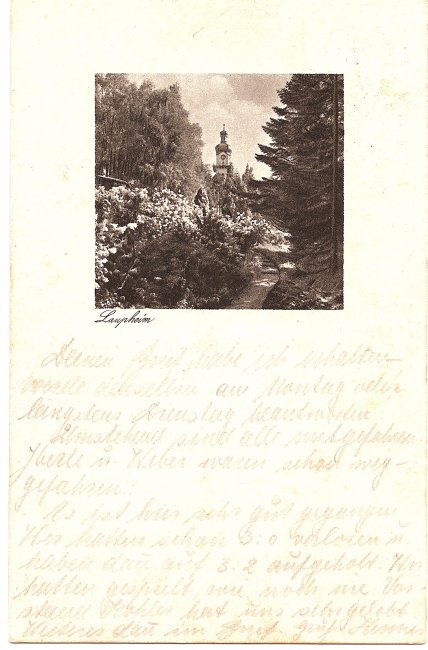 Laupheim
Deinen Brief habe ich erhalten
werde denselben am Montag oder
längstens Dienstag beantworten.
Umstehend sind alle mitgefahren.
Iberle u. Weber waren schon weg-
gefahren.
Es ist hier sehr gut gegangen
Wir hatten schon 3:0 verloren u
haben dan auf 3:2 aufgeholt. Wir
hatten gespielt, wie noch nie. Vor-
stand Kohler hat uns sehr gelobt
Weiteres dan im Brief. Gruß